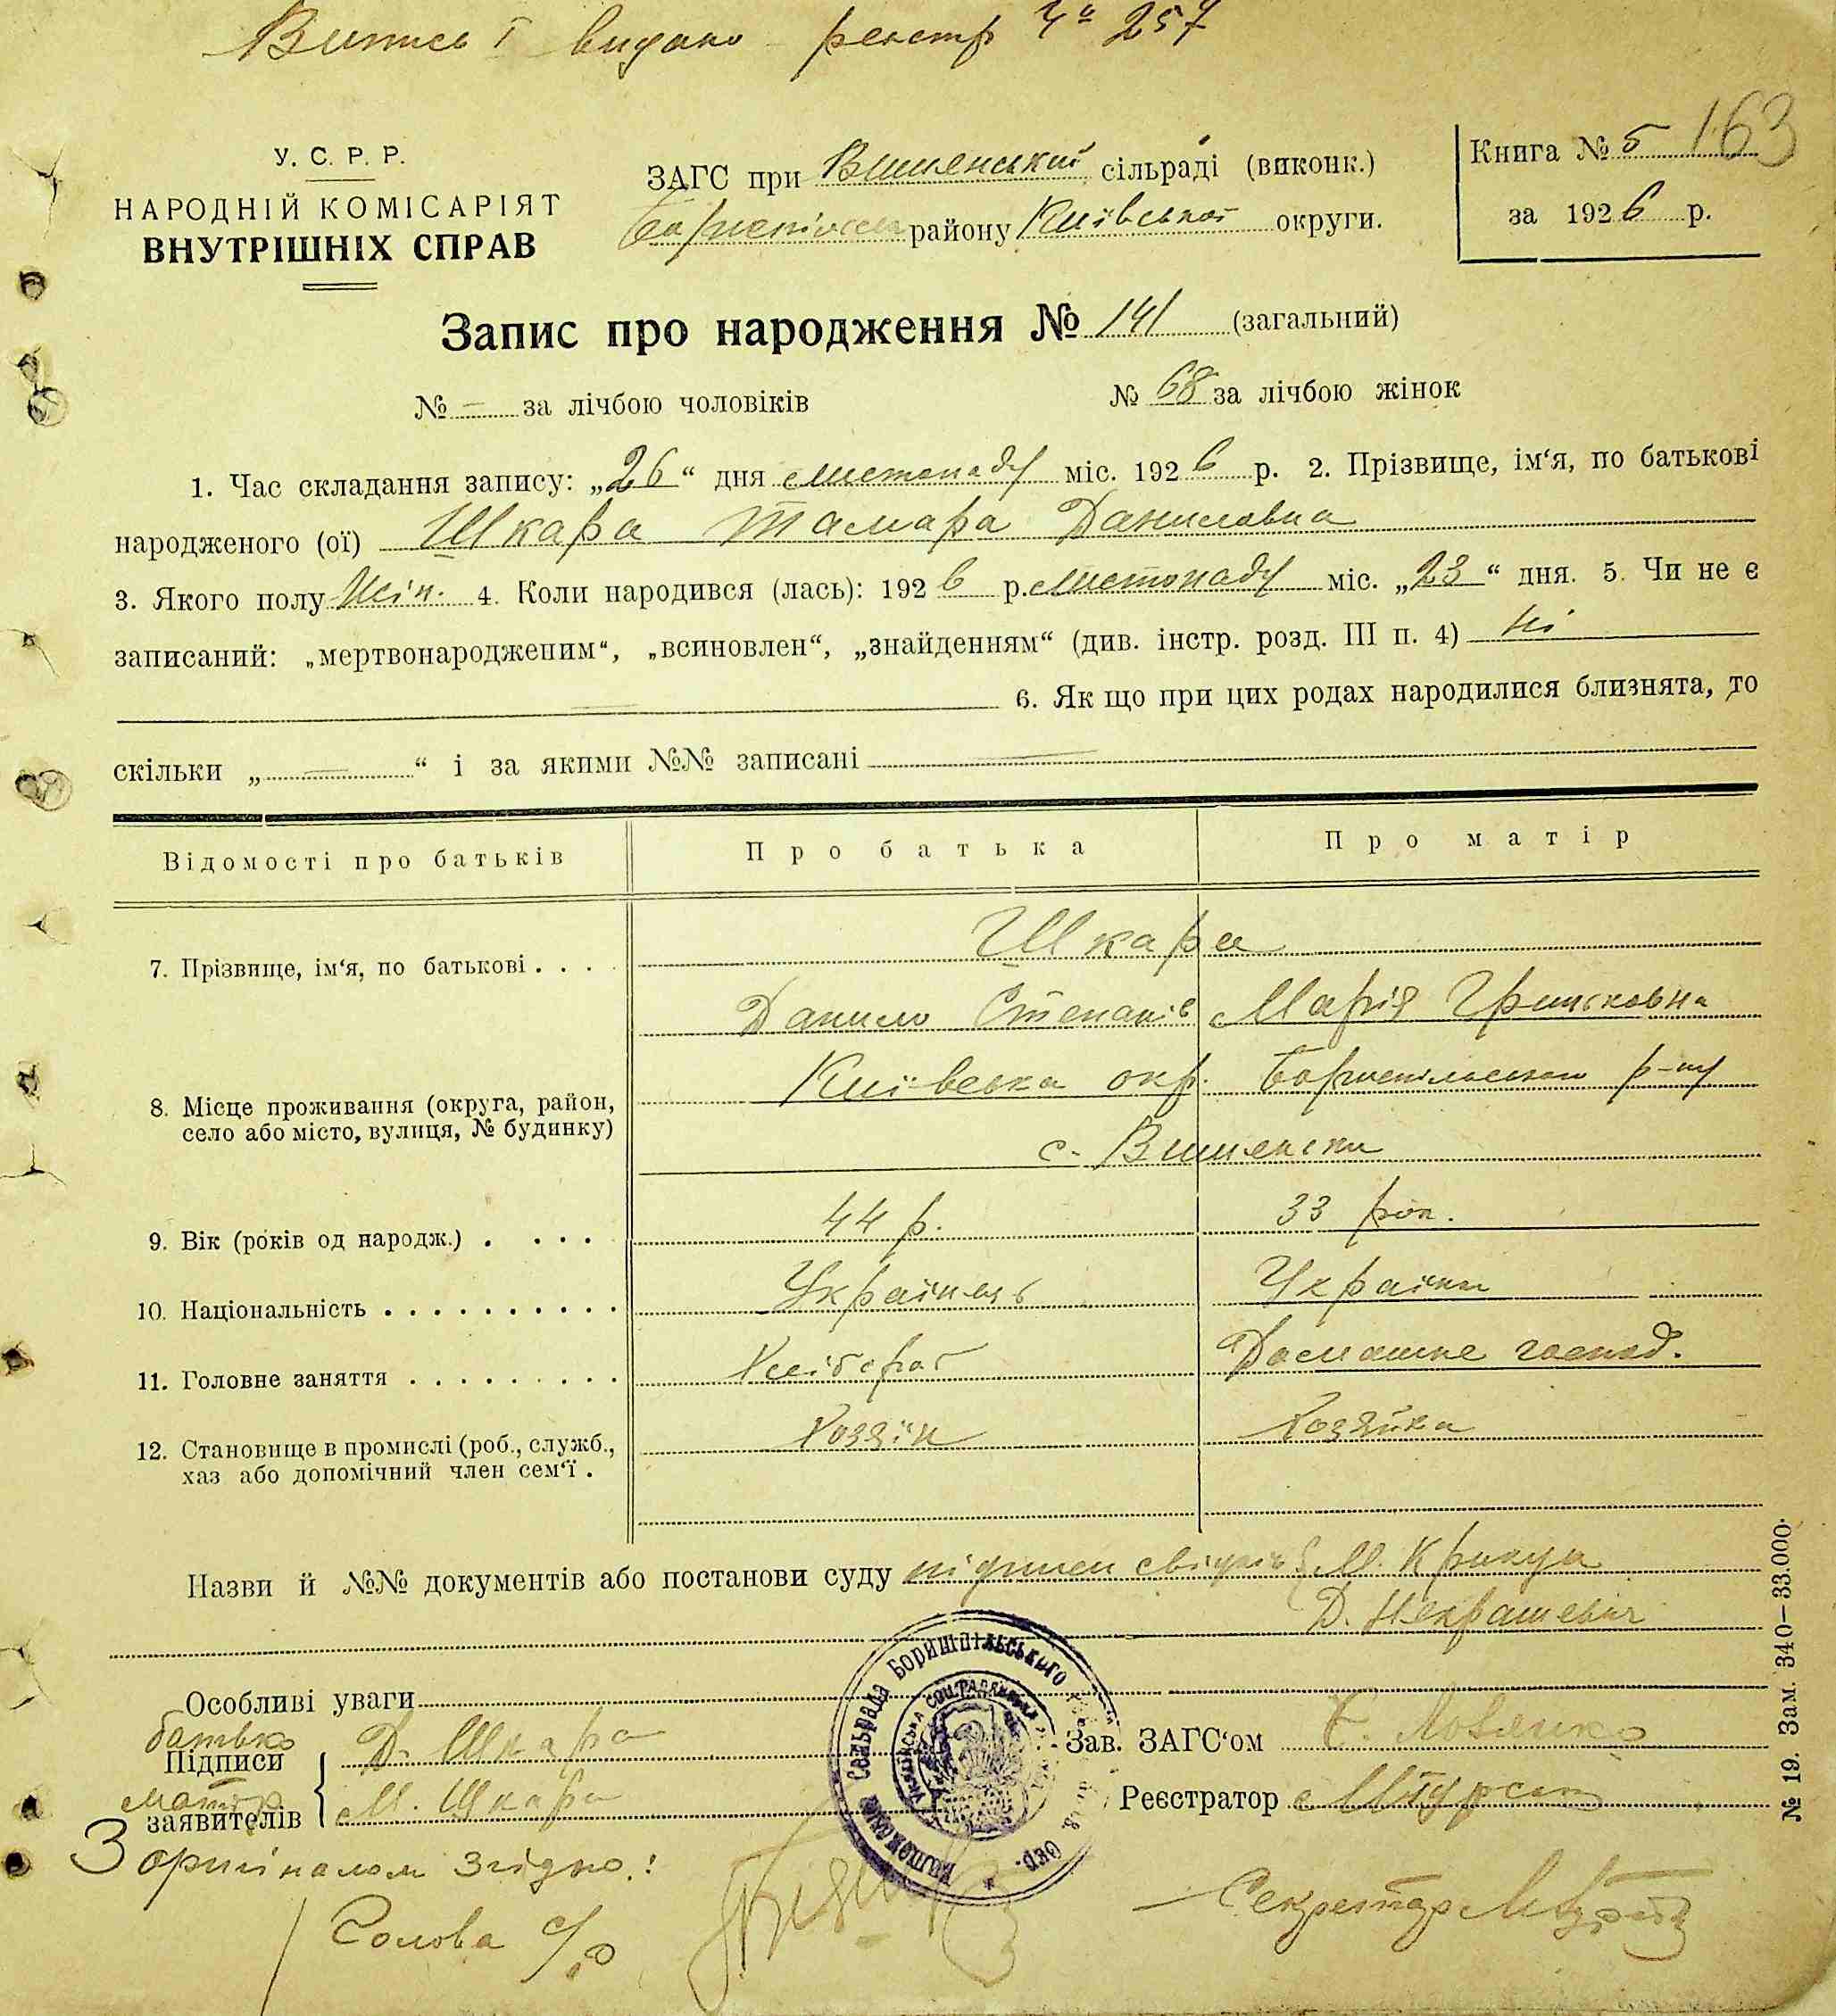 Випись І видано реєстр Ч° 257
163
У. С. Р. Р.
НАРОДНІЙ КОМІСАРІЯТ
ВНУТРІШНІХ СПРАВ
ЗАГС при Вишенській сільраді (виконк.)
району Київської округи.
Книга № 5
за 1926 р.
Запис про народження № 141 (загальний)
№ — за лічбою чоловіків № 68 за лічбою жінок
1. Час складання запису: „26“ дня листопаду міс. 1926 р. 2. Прізвище, ім‘я, по батькові
народженого (ої) Шкара Тамара Даниловна
3. Якого полу жін. 4. Коли народився (лась): 1926 р. листопаду міс. „23“ дня. 5. Чи не є
записаний: „мертвонародженим“, „всиновлен“, „знайденням“ (див. інстр. розд. III п. 4) ні
— 6. Як що при цих родах народилися близнята, то
скільки „—“ і за якими №№ записані —
Відомості про батьків Про батька Про матір
7. Прізвище, ім‘я, по батькові . . . . Шкара
Данило Степанів Марія Грицьковна
Київська окр. Бориспільського р-ну
8. Місце проживання (округа, район,
село або місто, вулиця, № будинку)
с. Вишеньки
9. Вік (років од народж.) . . . . 44 р. 33 рок.
10. Національність . . . . . . . . . . Українець Українка
11. Головне заняття . . . . . . . . . Хлібороб Домашне господ.
12. Становище в промислі (роб., служб., Хозяїн Хозяйка
хаз або допомічний член сем‘ї .
Назви й №№ документів або постанови суду підписи свідків М. Крикун
Д. Некрашевич
Особливі уваги
батько
Підписи Д. Шкара
матір
заявителів М. Шкара
Зав. ЗАГС‘ом
Реєстратор
Сельрада Боришпільського
Окр.
№ 19. Зам. 340—33.000.
З оригіналом згідно:
Голова с/р
Секретар